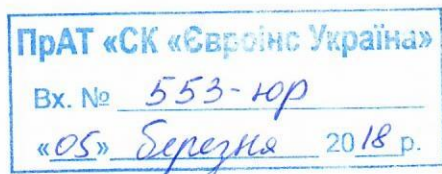 ПрАТ «СК «Євроінс Україна»
Вх. № 553-юр
«05» березня 2018 р.